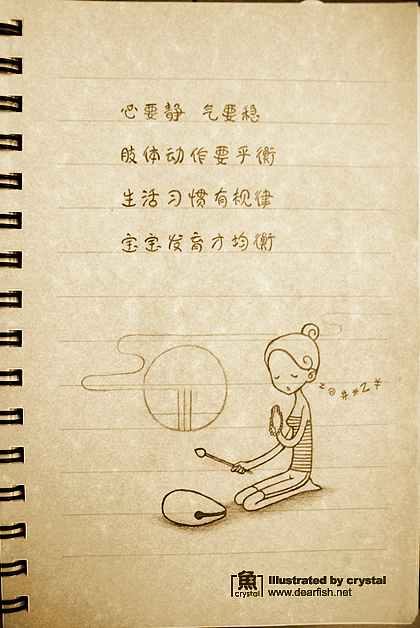 心要静 气要稳
肢体动作要平衡
生活习惯有规律
宝宝发育才均衡
z@##*z*
魚
crystal
Illustrated by crystal
www.dearfish.net